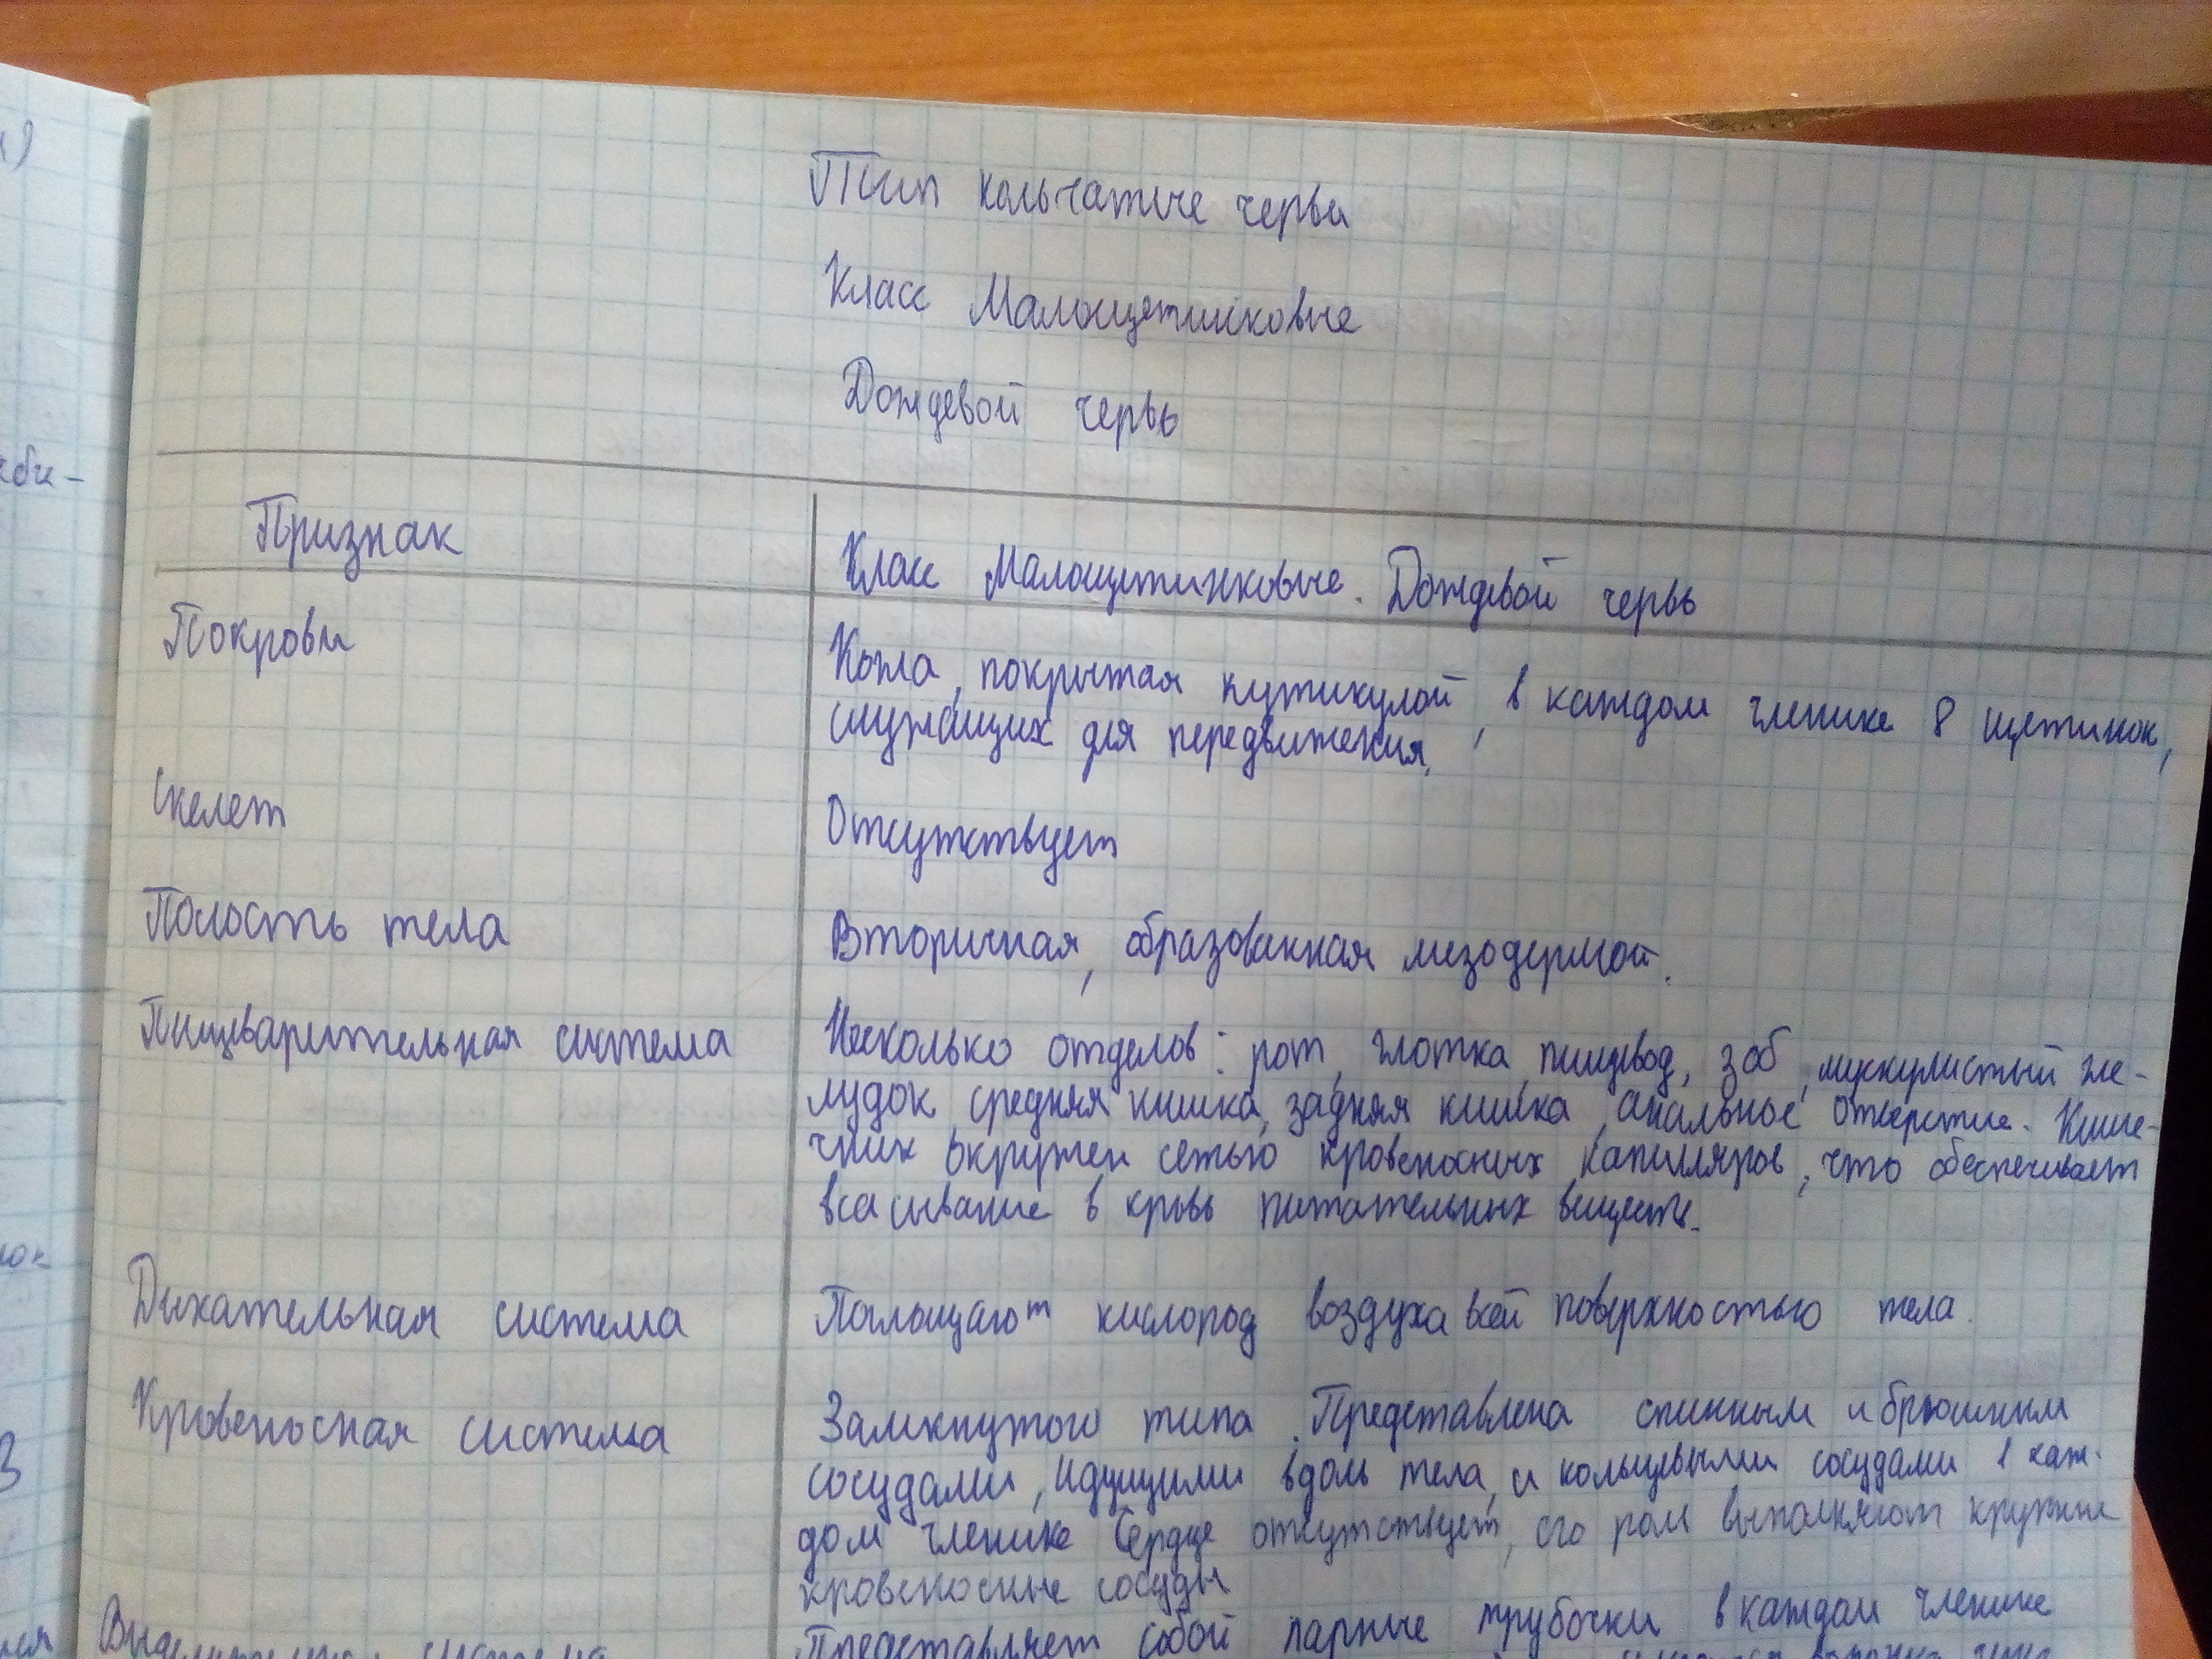 Тип кольчатые черви
Класс Малощетинковые
Дождевой червь
Признак
Класс Малощетинковые. Дождевой червь
Покровы
Кожа, покрытая кутикулой, в каждом членике 8 щетинок,
служащих для передвижения.
Скелет
Отсутствует
Полость тела
Вторичная, образованная мезодермой.
Пищеварительная система
Несколько отделов: рот, глотка, пищевод, зоб, мускулистый же-
лудок, средняя кишка, задняя кишка, анальное отверстие. Кише-
чник окружен сетью кровеносных капилляров, что обеспечивает
всасывание в кровь питательных веществ.
Дыхательная система
Поглощают кислород воздуха всей поверхностью тела.
Кровеносная система
Замкнутого типа. Представлена спинным и брюшным
сосудами, идущими вдоль тела, и кольцевыми сосудами в каж-
дом членике Сердце отсутствует, его роль выполняют крупные
кровеносные сосуды
Выделительная система
Представляет собой парные трубочки в каждом членике